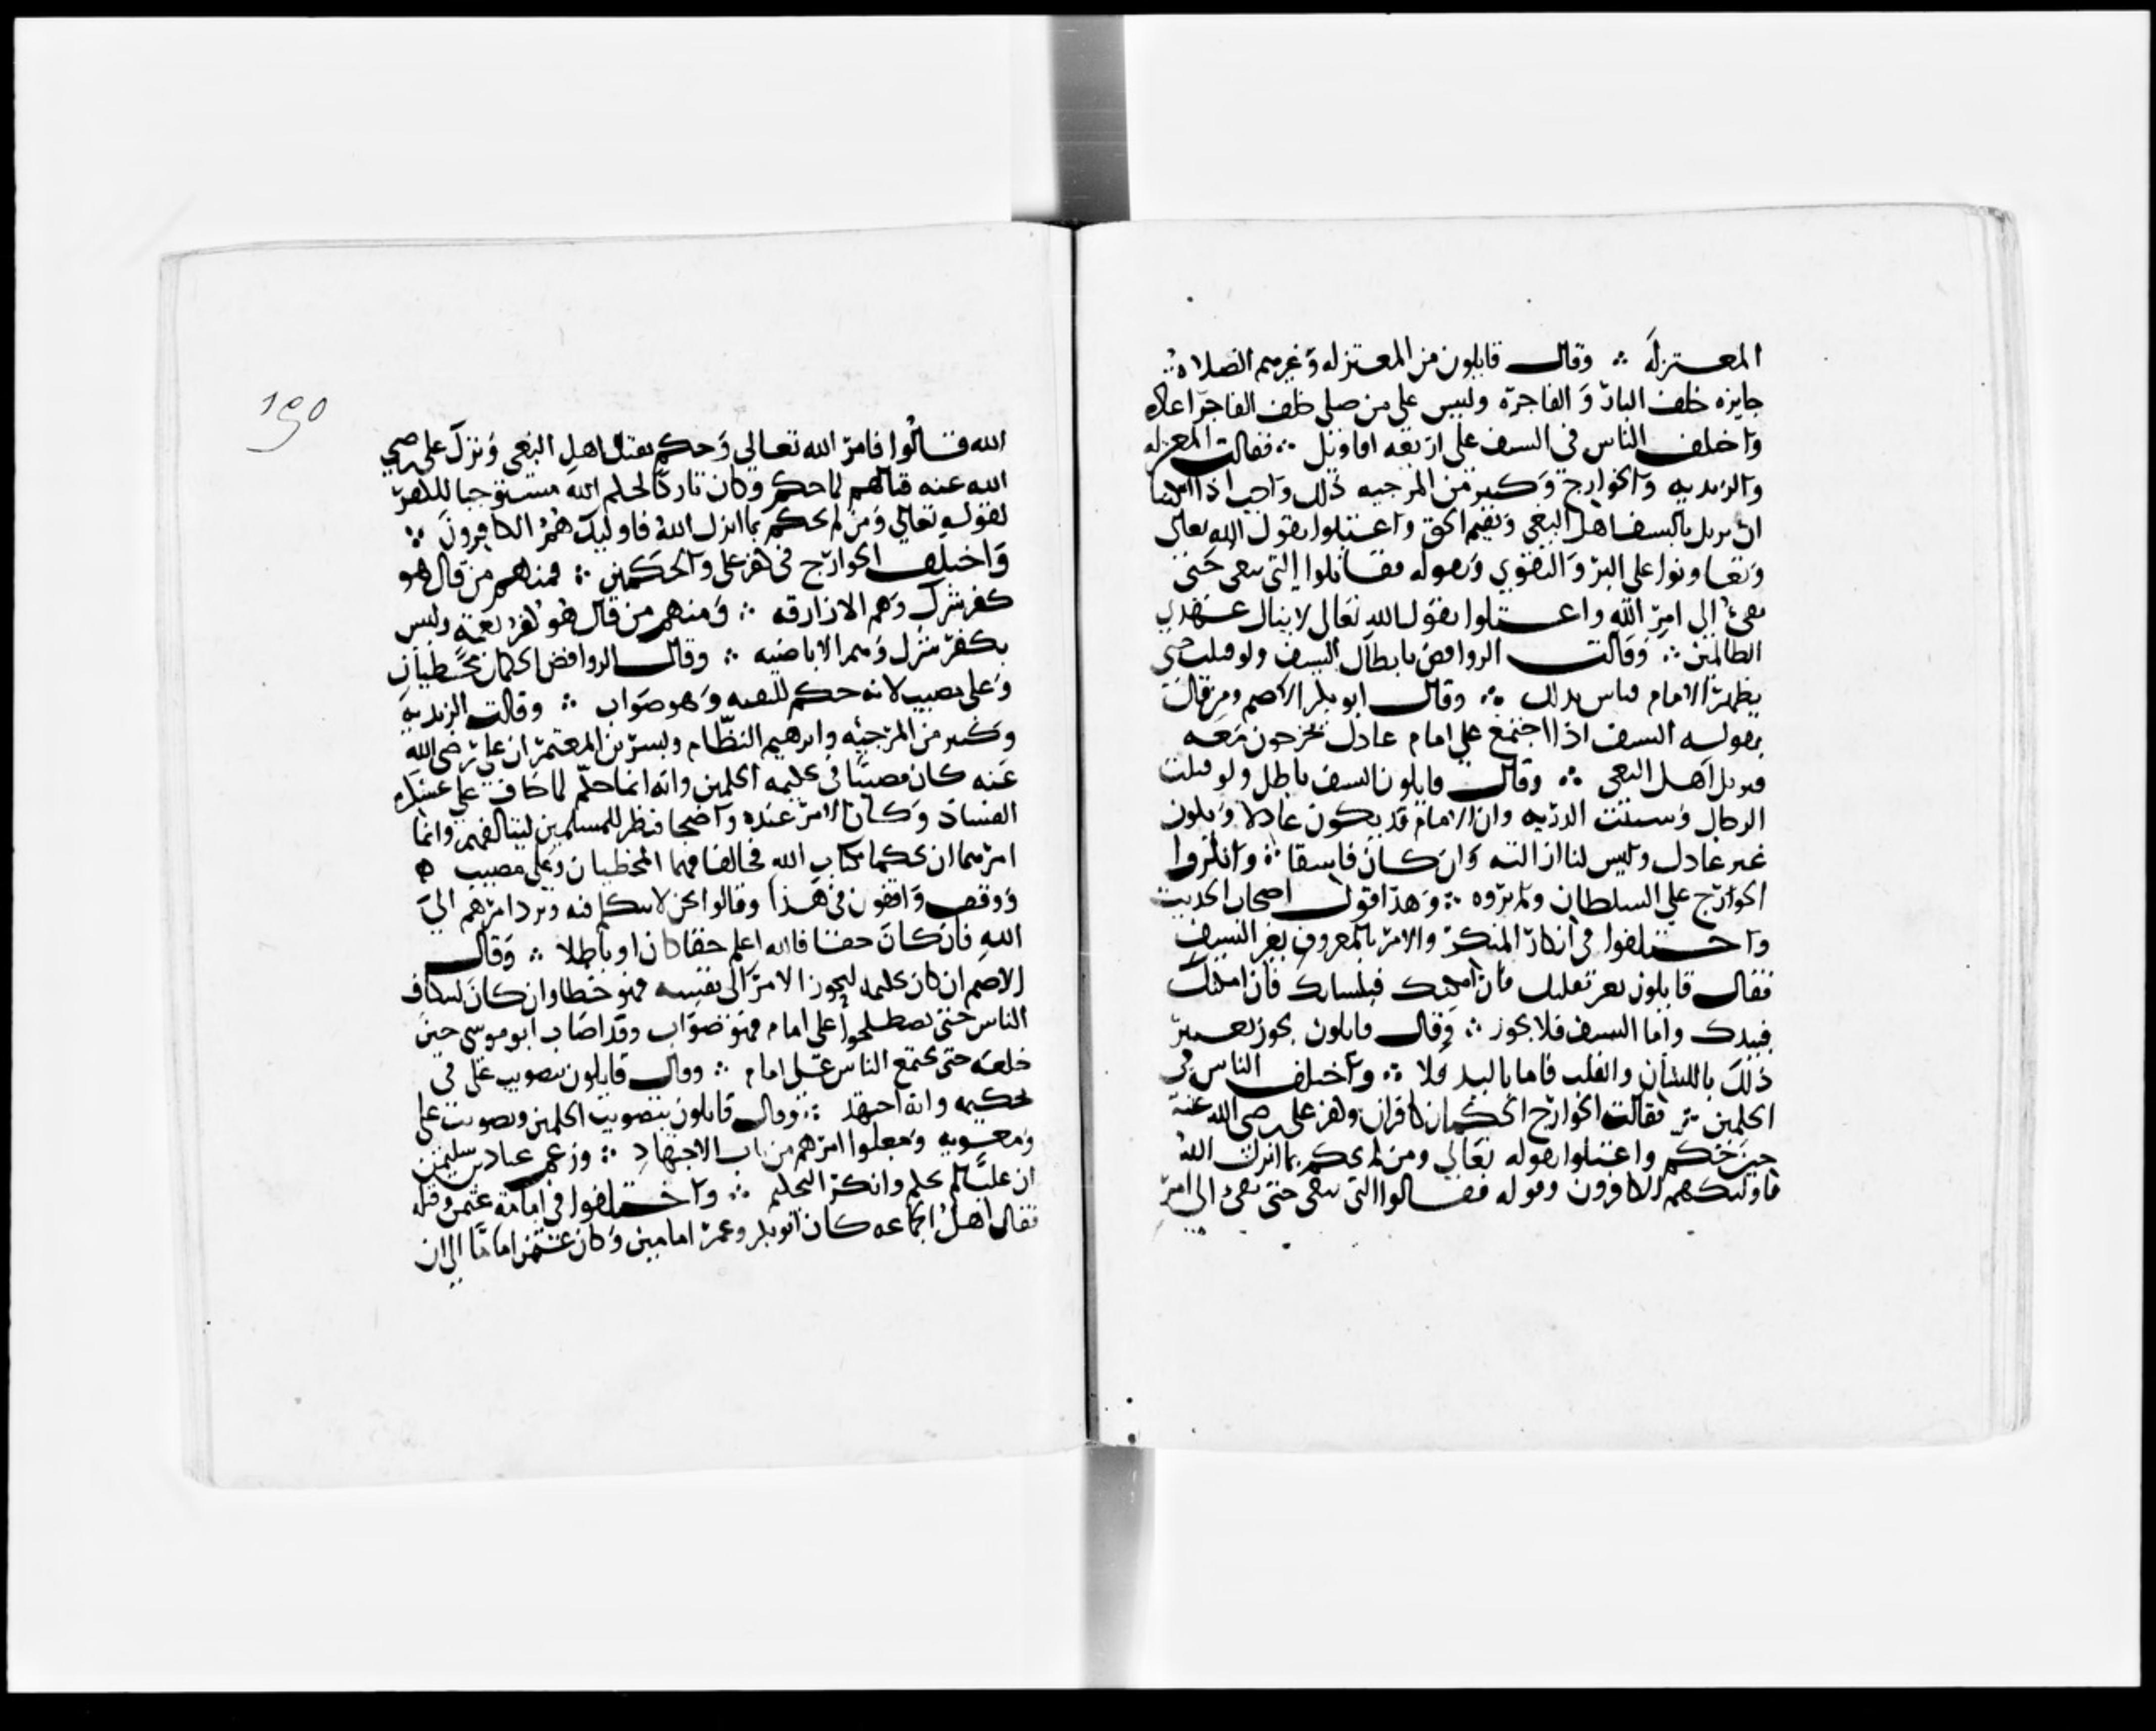 المعتزلة ∴ وقال قايلون من المعتزله وغيرهم الصلاة ∴
جايزه خلف البار والفاجر وليس على من صلى خلف الفاجر اعاده
واختلف الناس في السيف على اربعه اقاويل ∴ فقالت المعتزله
والزيديه والخوارج وكثير من المرجيه ذلك واجب اذا امكننا
ان نزيل بالسيف اهل البغي ونقيم الحق واعتلوا بقول الله تعالى
وتعاونوا على البر والتقوي وبقوله فقاتلوا التي تبغي حتى
تفئ الى امر الله واعتلوا بقول الله تعالى لا ينال عهدي
الظالمين ∴ وقالت الروافض بابطال السيف ولو قتلت حتى
يظهر الامام فيامر بذلك ∴ وقال ابو بكر الاصم ومن قال
بقوله السيف اذا اجتمع على امام عادل يخرجون معه
فيزيل اهل البغي ∴ وقال قايلون السيف باطل ولو قتلت
الرجال وسبيت الذريه وان الامام قد يكون عادلا ويكون
غير عادل وليس لنا ازالته وان كان فاسقا ∴ وانكروا
الخوارج على السلطان ولم يروه ∴ وهذا قول اصحاب الحديث
واختلفوا في انكار المنكر والامر بالمعروف بغير السيف
فقال قايلون تغير بقلبك فان امكنك فبلسانك فان امكنك
فبيدك واما السيف فلا يجوز ∴ وقال قايلون يجوز تغيير
ذلك باللسان والقلب فاما باليد فلا ∴ واختلف الناس في
الحكمين ∴ فقالت الخوارج الحكمان كافران وكفر على رضي الله عنه
حين حكم واعتلوا بقوله تعالى ومن لم يحكم بما انزل الله
فاوليك هم الكافرون وقوله فقاتلوا التي تبغي حتى تفئ الى امر
١٩٥
الله قالوا فامر الله تعالى وحكم بقتال اهل البغي وترك على رضي
الله عنه قتالهم لما حكم وكان تاركا لحكم الله مستوجبا للكفر
لقوله تعالى ومن لم يحكم بما انزل الله فاوليك هم الكافرون ∴
واختلف الخوارج في كفر على والحكمين ∴ فمنهم من قال هو
كفر شرك وهم الازارقه ∴ ومنهم من قال هو كفر نعمة وليس
بكفر شرك وهم الاباضيه ∴ وقالت الروافض الحكمان مخطيان
وعلى مصيب لانه حكم للتقيه وهو صواب ∴ وقالت الزيدية
وكثير من المرجيه وابرهيم النظام وبشر بن المعتمر ان علي رضي الله
عنه كان مصيبا في تحكيمه الحكمين وانه انما حكم لما خاف على عسكره
الفساد وكان الامر عنده واضحا فنظر للمسلمين ليتالفهم وانما
امرهما ان يحكما بكتاب الله فخالفا فهما المخطيان وعلى مصيب
ووقف واقفون في هذا وقالوا نحن لا نتكلم فيه ونرد امرهم الى
الله فان كان حقا فالله اعلم حقا كان او باطلا ∴ وقال
الاصم ان كان تحكيمه ليحوز الامر الى نفسه فهو خطا وان كان ليتكاف
الناس حتى يصطلحوا على امام فهو صواب وقد اصاب ابو موسى حين
خلعه حتى يجتمع الناس على امام ∴ وقال قايلون بتصويب على في
تحكيمه وانه اجتهد ∴ وقال قايلون بتصويب الحكمين وتصويب على
ومعويه وجعلوا امرهم من باب الاجتهاد ∴ وزعم عباد بن سليمن
ان عليا لم يحكم وانكر التحكيم ∴ واختلفوا في امامة عثمن وقتله
فقال اهل الجماعه كان ابو بكر وعمر امامين وكان عثمن اماما الى ان